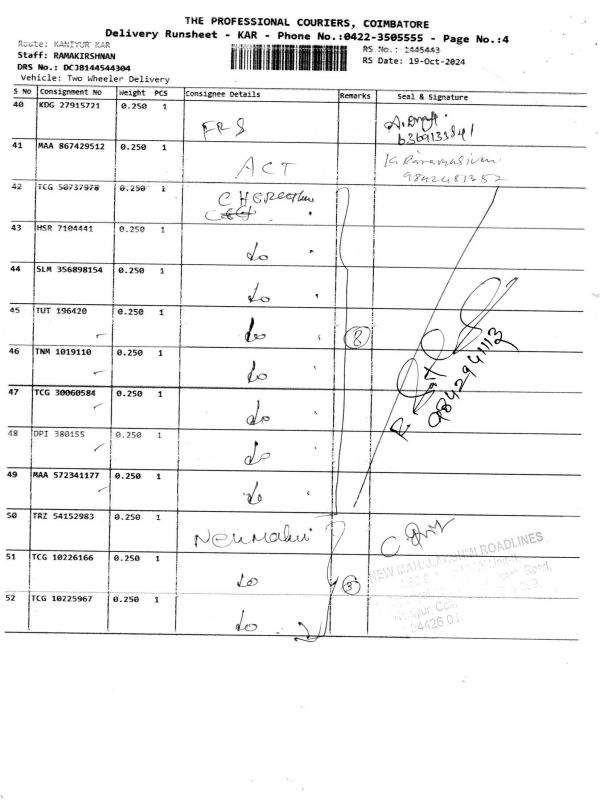 THE PROFESSIONAL COURIERS, COIMBATORE
Delivery Runsheet - KAR - Phone No.:0422-3505555 - Page No.:4
Route: KANIYUR KAR
RS No.: 1445443
Staff: RAMAKIRSHNAN
RS Date: 19-Oct-2024
DRS No.: DCJB144544304
Vehicle: Two Wheeler Delivery
S No Consignment No Weight PCS Consignee Details Remarks Seal & Signature
40 KDG 27915721 0.250 1 FRS
41 MAA 867429512 0.250 1 ACT K. Paramasivam
42 TCG 50737978 0.250 1
43 HSR 7104441 0.250 1 do
44 SLM 356898154 0.250 1 do
45 TUT 196420 0.250 1 do 8
46 TNM 1019110 0.250 1 do
47 TCG 30060584 0.250 1 do 9842941113
48 DPI 380155 0.250 1 do
49 MAA 572341177 0.250 1 do
50 TRZ 54152983 0.250 1
51 TCG 10226166 0.250 1 do 3 NEW MAHALAKSHMI ROADLINES
52 TCG 10225967 0.250 1 do